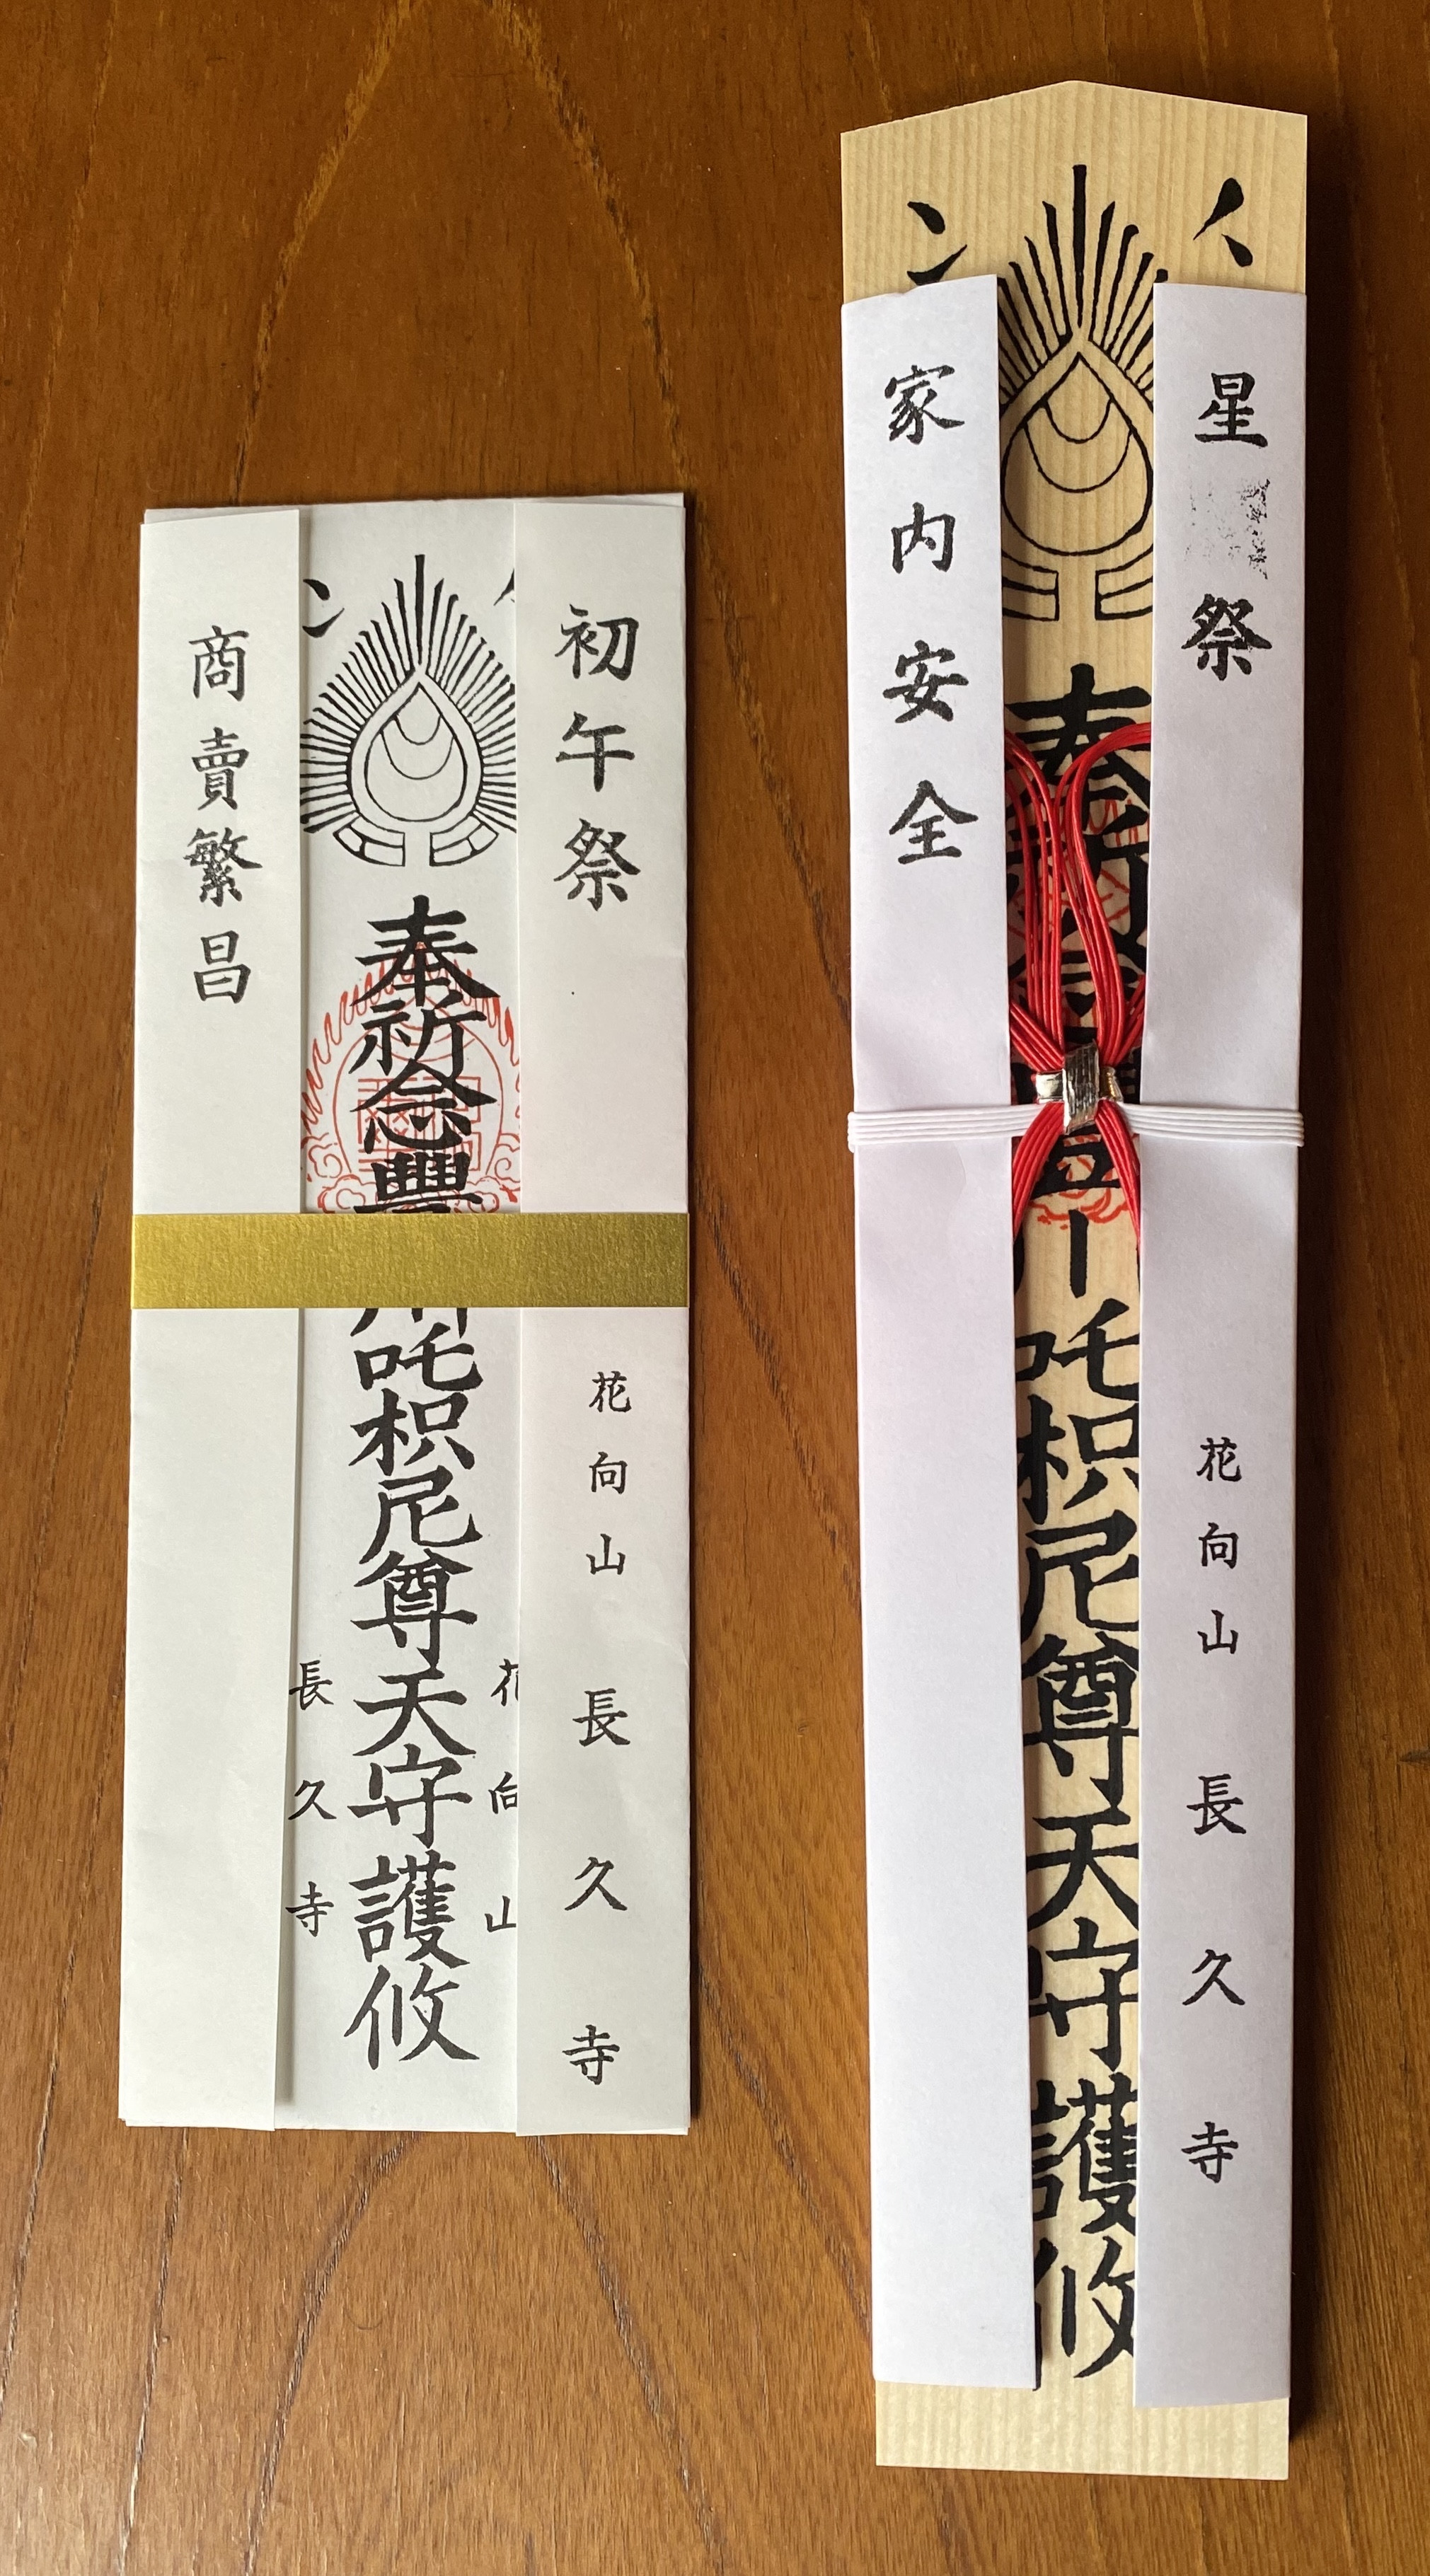 初午祭
花向山 長久寺
奉祈念豊川吒枳尼尊天守護攸
花向山
長久寺
商賣繁昌
星祭
花向山 長久寺
奉祈念豊川吒枳尼尊天守護攸
家内安全